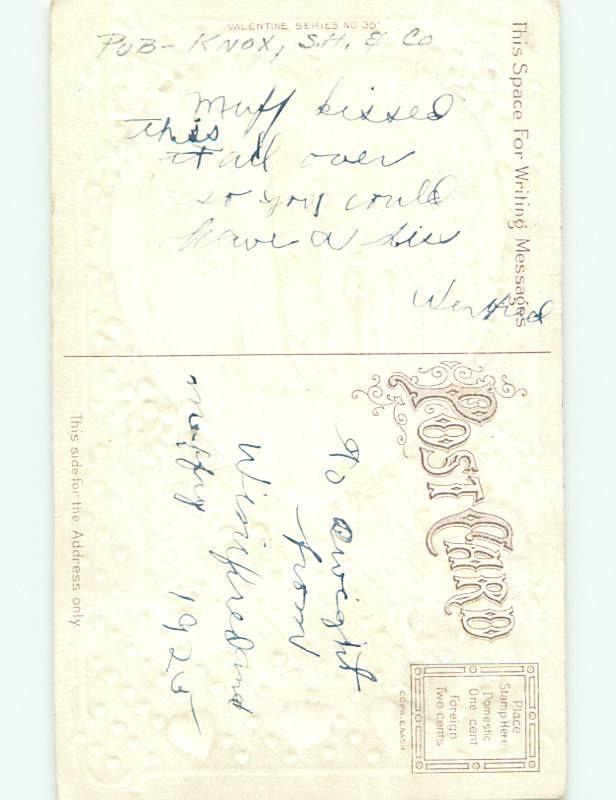 VALENTINE SERIES NO 35
PUB- KNOX, S.H. & CO
This Space For Writing Messages
Muff kissed
this
it all over
so you could
have a kiss
Winifred
POST CARD
To Dwight
from
Winifred and
Muffy
1925
Place
Stamp Here
Domestic
One cent
Foreign
Two cents
COPR. E. NASH
This side for the Address only